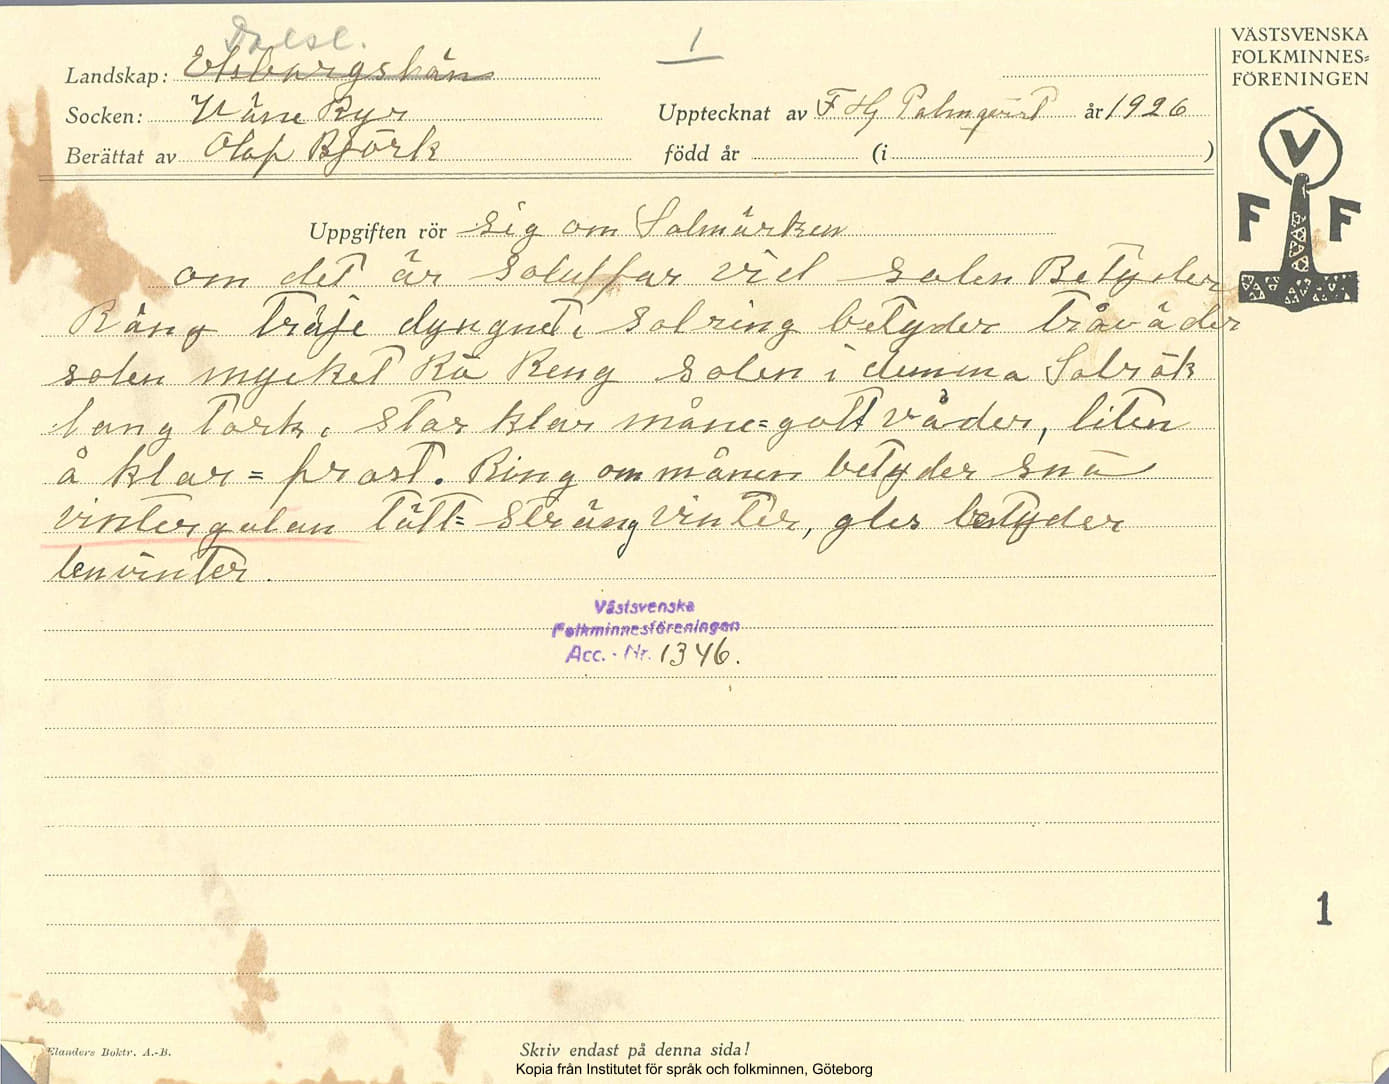 Dalsl.
1
VÄSTSVENSKA
FOLKMINNES=
FÖRENINGEN
Landskap: Elsborgslän
Socken: Väne Ryr
Upptecknat av F Hj Palmqvist år 1926
Berättat av Olof Björk
född år (i )
V
F F
Uppgiften rör sig om Solmärken
om det är soluffar vid solen Betyder
Räng träje dyngnet, solring betyder tråväder
solen mycket Rö Reng solen i demma Solrök
lang tork, stor klar måne=gott våder, liten
å klar = frost. Ring om månen betyder snö
vintergatan tätt= sträng vinter, gles betyder
lenvinter.
Västsvenska
Folkminnesföreningen
Acc. - Nr. 1346.
1
Elanders Boktr. A.-B.
Skriv endast på denna sida!
Kopia från Institutet för språk och folkminnen, Göteborg